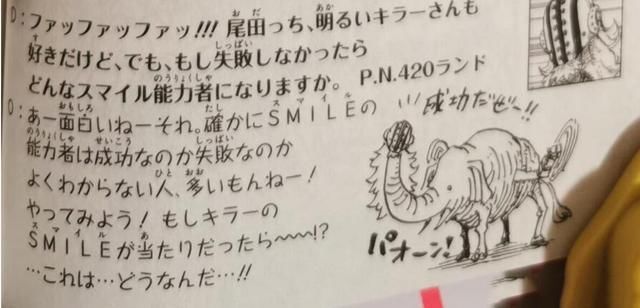 D：ファッファッファッ!!! 尾田っち、明るいキラーさんも
好きだけど、でも、もし失敗しなかったら
どんなスマイル能力者になりますか。 P.N.420ランド
O：あー面白いねーそれ。確かにSMILEの
能力者は成功なのか失敗なのか
よくわからない人、多いもんねー！
やってみよう！もしキラーの
SMILEが当たりだったら〜〜〜!?
…これは…どうなんだ…!!
成功だぜー!!
パオーン!